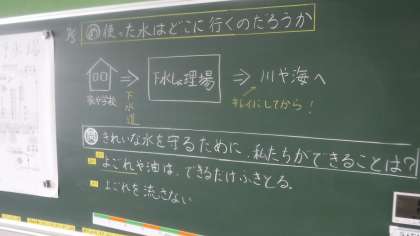 め 使った水はどこに行くのだろうか
家や学校 ⇒ 下水しょ理場 ⇒ 川や海へ
下水道
キレイにしてから！
問 きれいな水を守るために、私たちができることは？
よごれや油は、できるだけふきとる。
よごれを流さない